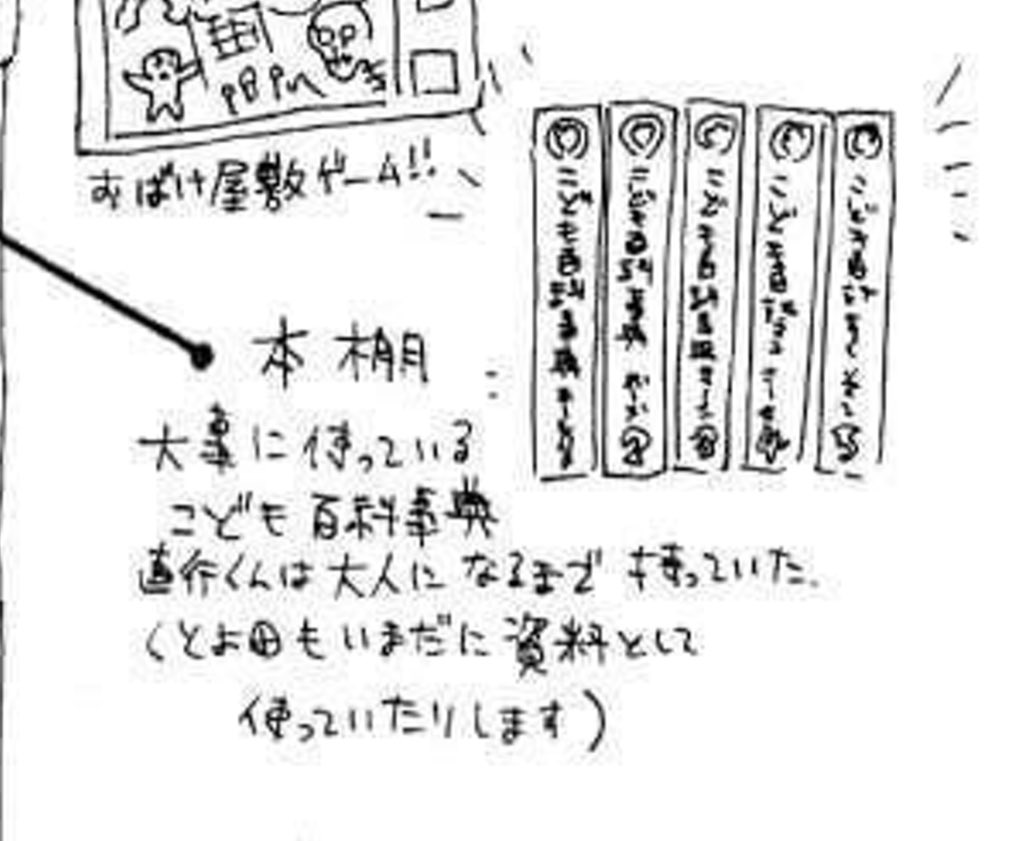 おばけ屋敷ゲーム!!
本棚
大事に使っている
こども百科事典
直行くんは大人になるまで使っていた.
(とよ田もいまだに資料として
使っていたりします)
こども百科事典
こども百科事典
こども百科事典
こども百科
こども百科